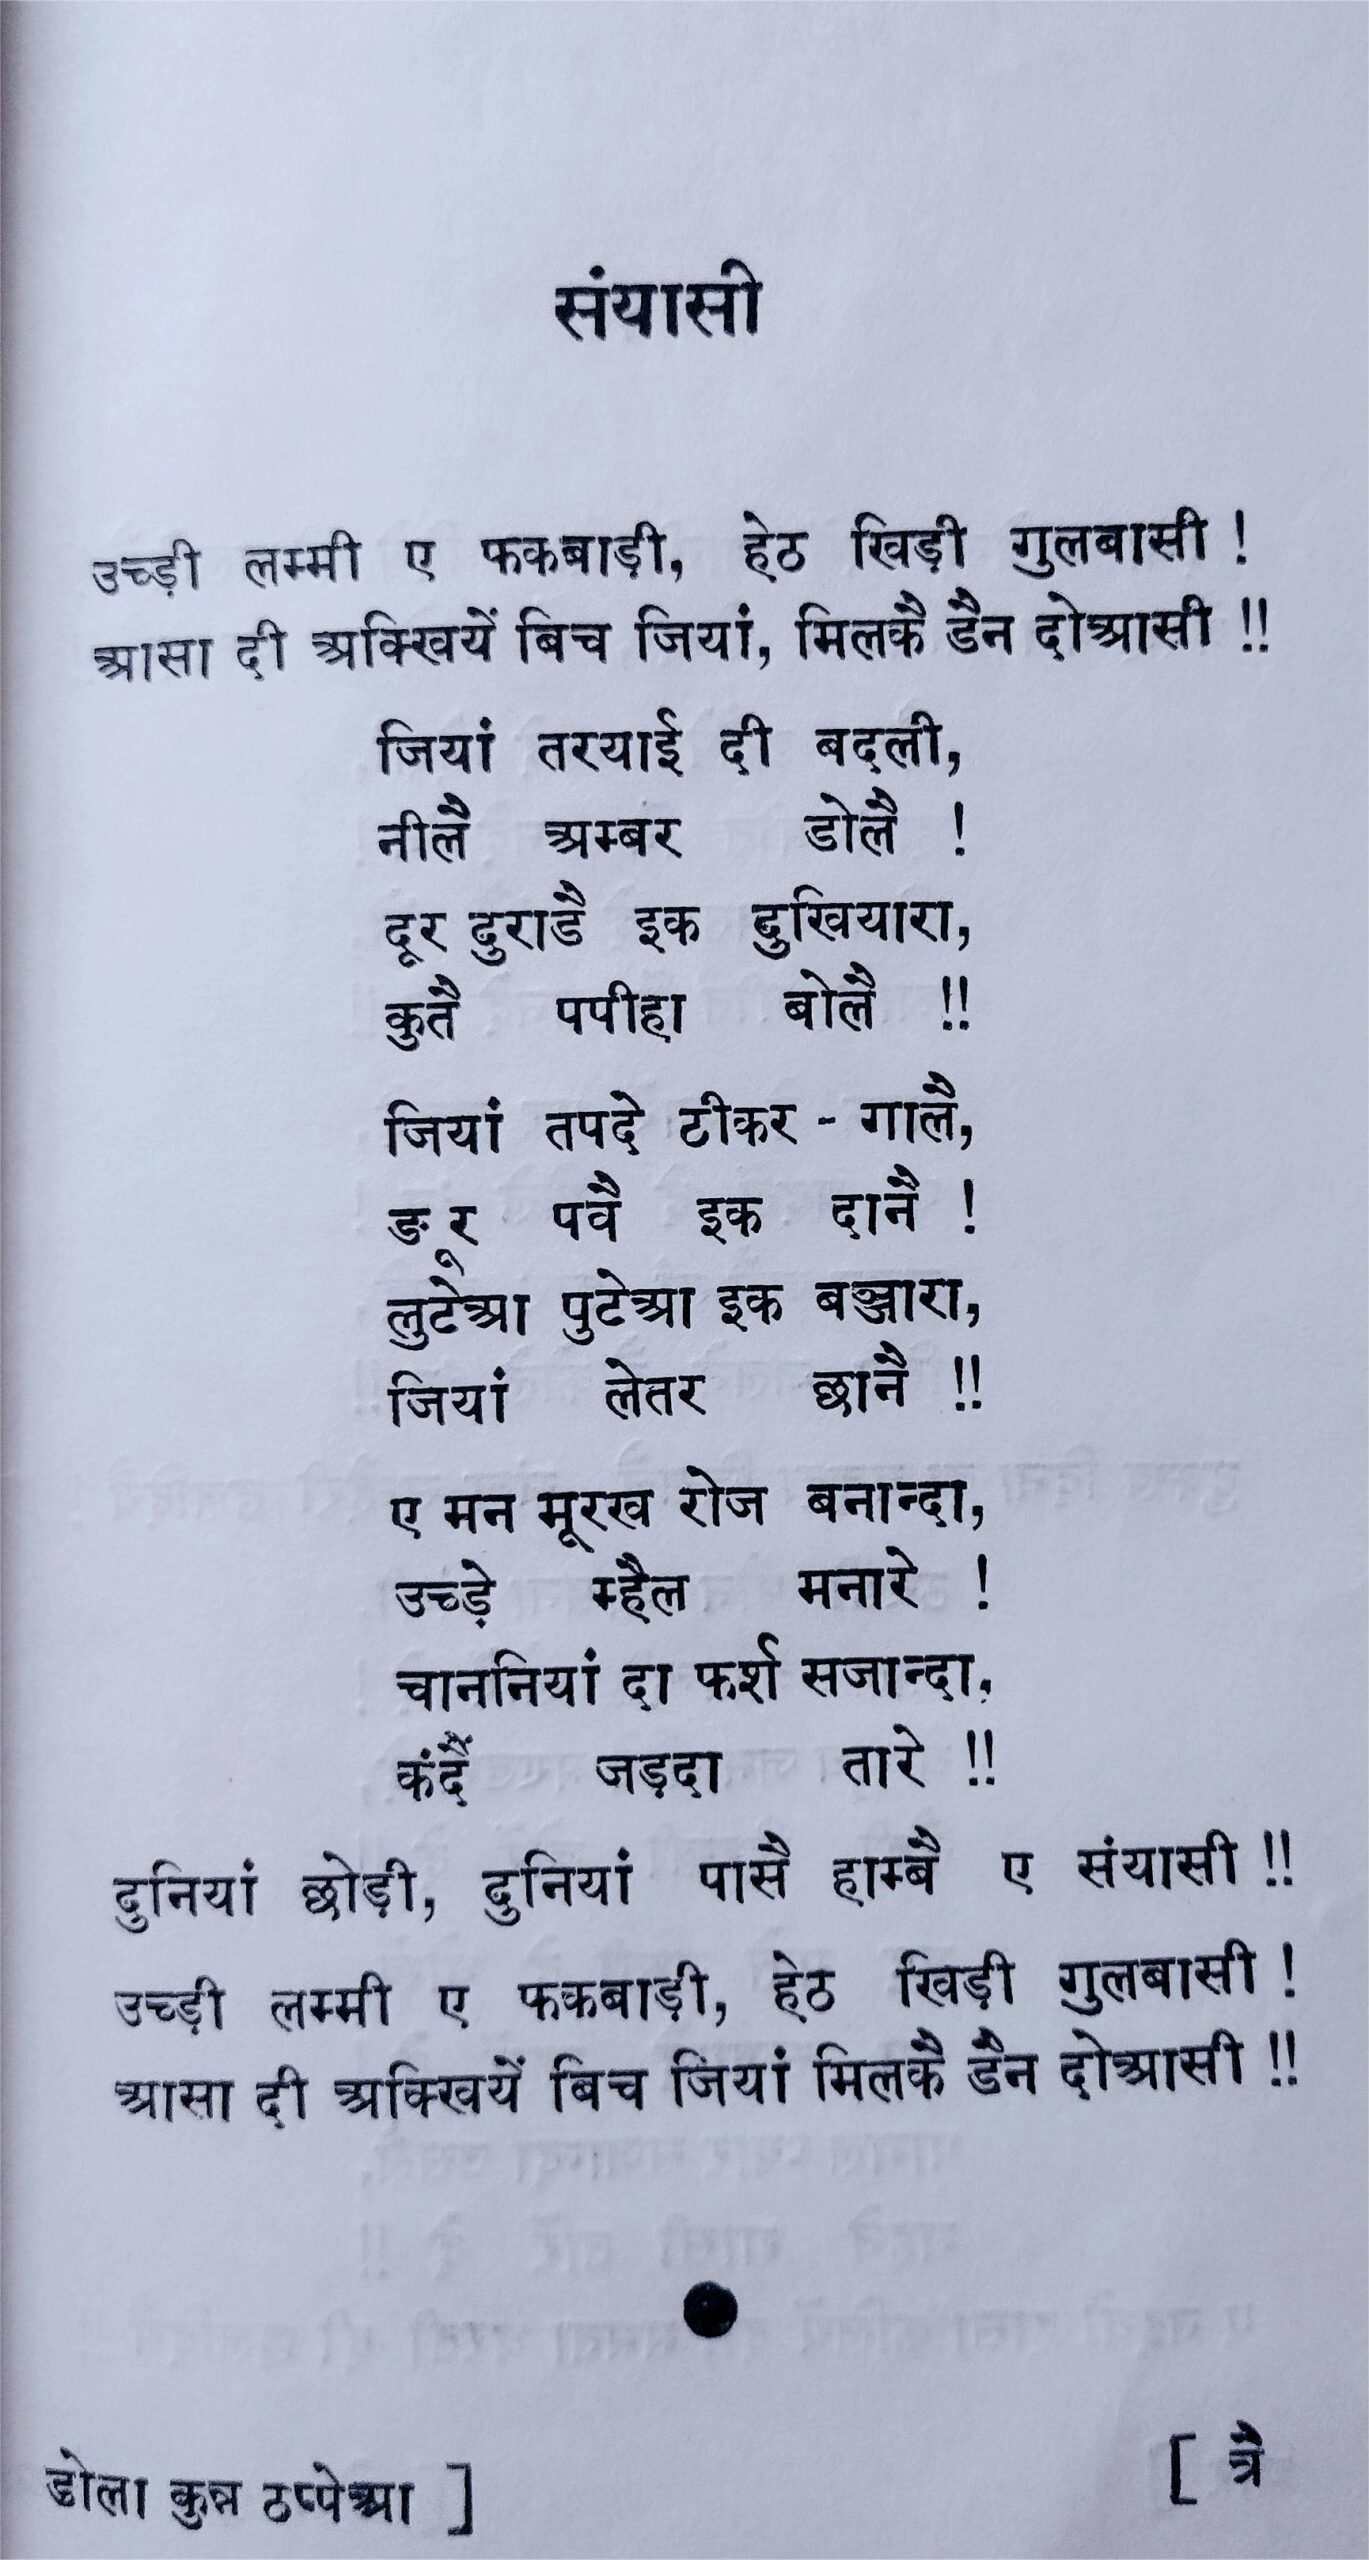 संयासी
उच्ड़ी लम्मी ए फकबाड़ी, हेठ खिड़ी गुलबासी !
आसा दी अक्खियें बिच जियां, मिलकै डैन दोआसी !!
जियां तरयाई दी बदली,
नीलै अम्बर डोलै !
दूर दुराडै इक दुखियारा,
कुतै पपीहा बोलै !!
जियां तपदे टीकर - गालै,
ङूर पवै इक दानै !
लुटेआ पुटेआ इक बञ्जारा,
जियां लेतर छानै !!
ए मन मूरख रोज बनान्दा,
उच्ड़े म्हैल मनारे !
चाननियां दा फर्श सजान्दा,
कंदैं जड़दा तारे !!
दुनियां छोड़ी, दुनियां पासै हाम्बै ए संयासी !!
उच्ड़ी लम्मी ए फकबाड़ी, हेठ खिड़ी गुलबासी !
आसा दी अक्खियें बिच जियां मिलकै डैन दोआसी !!
डोला कुन्न ठप्पेआ ] [ त्रै